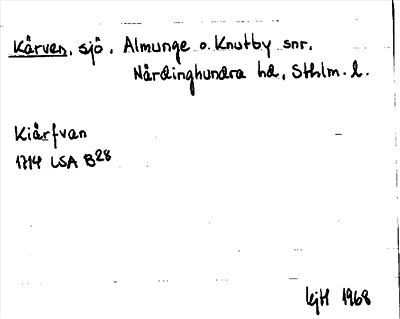 Kärven, sjö, Almunge o. Knutby snr.
Närdinghundra hd, Sthlm. l.
Kiärfvan
1714 LSA B28
kjH 1968